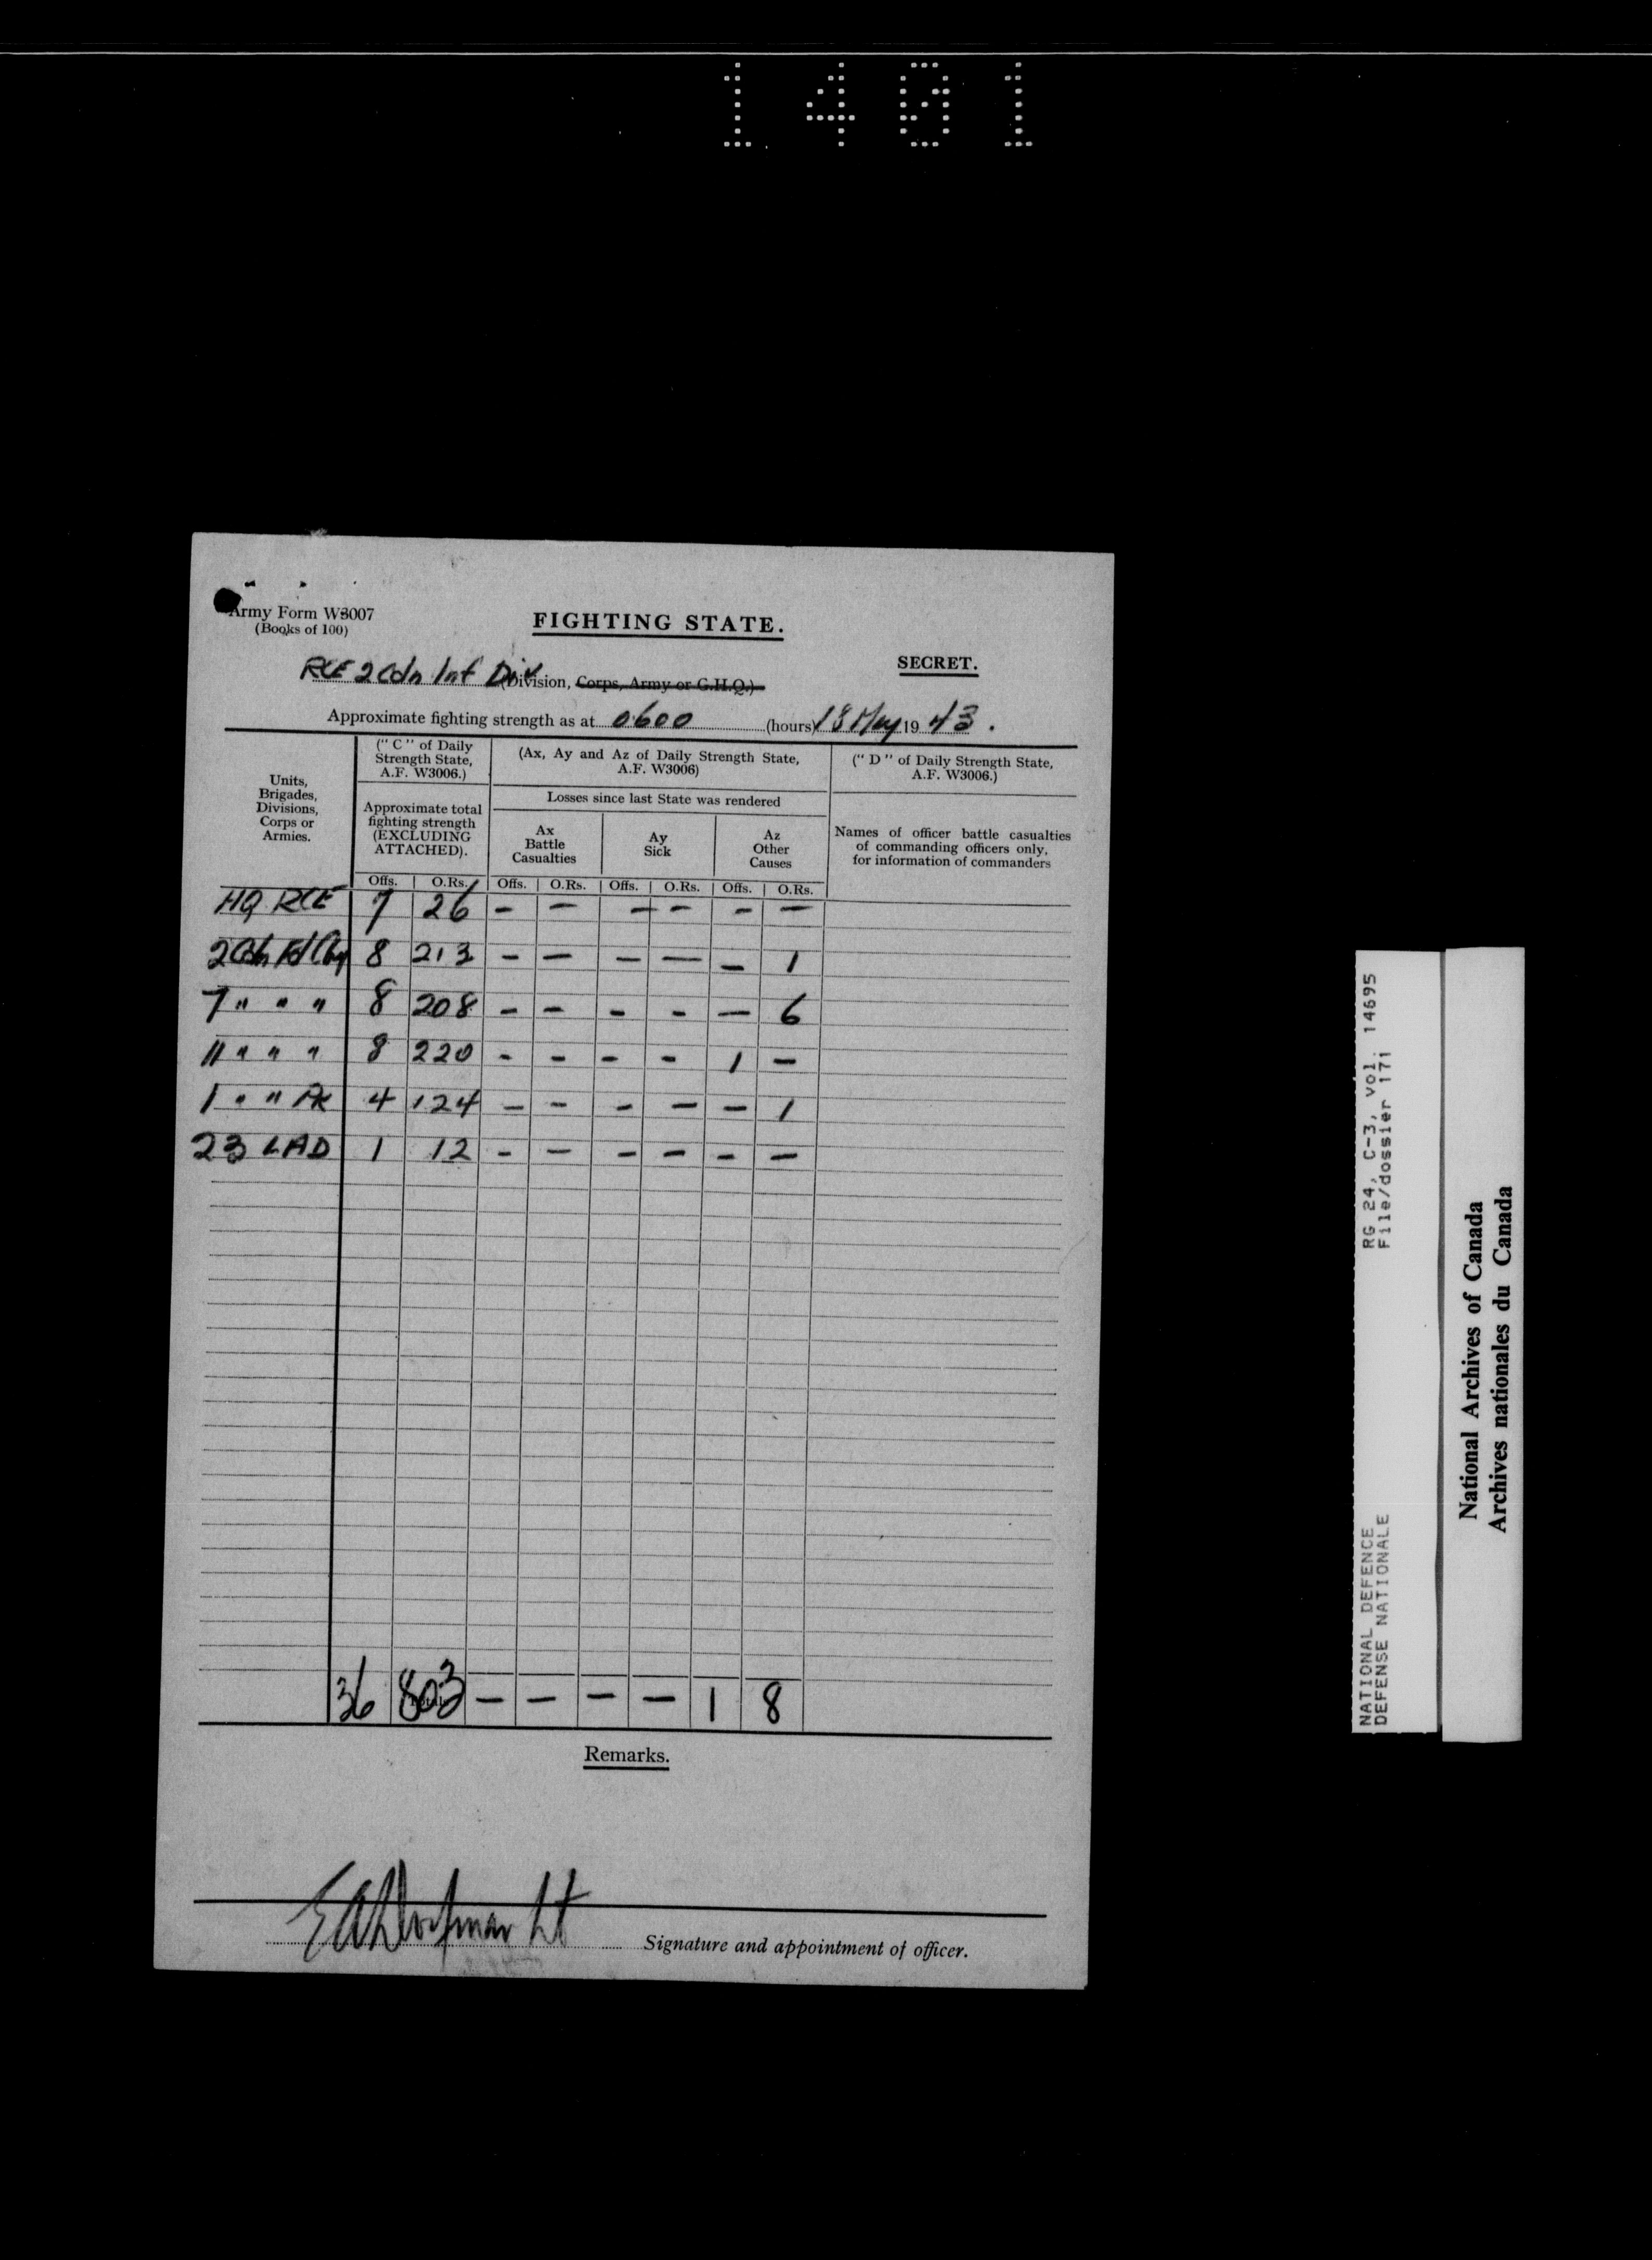 1401
Army Form W3007
(Books of 100)
FIGHTING STATE.
SECRET.
RCE 2 Cdn Inf Div (Division, Corps, Army or G.H.Q.)
Approximate fighting strength as at 0600 (hours) 18 May 19 43.
Units, Brigades, Divisions, Corps or Armies.
("C" of Daily Strength State, A.F. W3006.)
Approximate total fighting strength (EXCLUDING ATTACHED).
(Ax, Ay and Az of Daily Strength State, A.F. W3006)
Losses since last State was rendered
Ax Battle Casualties
Ay Sick
Az Other Causes
("D" of Daily Strength State, A.F. W3006.)
Names of officer battle casualties of commanding officers only, for information of commanders
Offs. O.Rs. Offs. O.Rs. Offs. O.Rs. Offs. O.Rs.
HQ RCE 7 26 - - - - - -
2 Cdn Fd Coy 8 213 - - - - - 1
7 " " " 8 208 - - - - - 6
11 " " " 8 220 - - - - 1 -
1 " " Pk 4 124 - - - - - 1
23 LAD 1 12 - - - - - -
36 803 - - - - 1 8
Remarks.
Lt
Signature and appointment of officer.
RG 24, C-3, vol. 14695
File/dossier 171
NATIONAL DEFENCE
DEFENSE NATIONALE
National Archives of Canada
Archives nationales du Canada